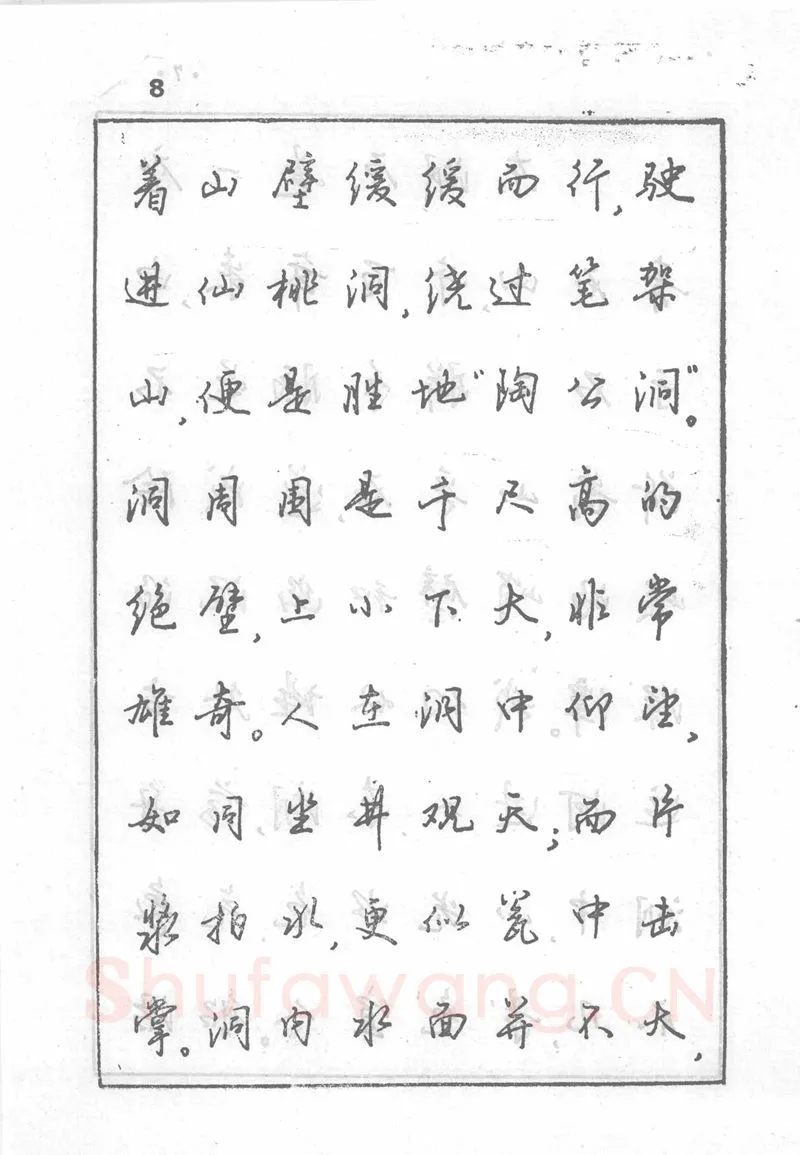 8
着山壁缓缓而行,驶
进仙桃洞,绕过笔架
山,便是胜地"陶公洞"。
洞周围是千尺高的
绝壁,上小下大,非常
雄奇。人在洞中仰望,
如同坐井观天;而片
浆拍水,更似瓮中击
掌。洞内水面并不大,
Shufawang.CN